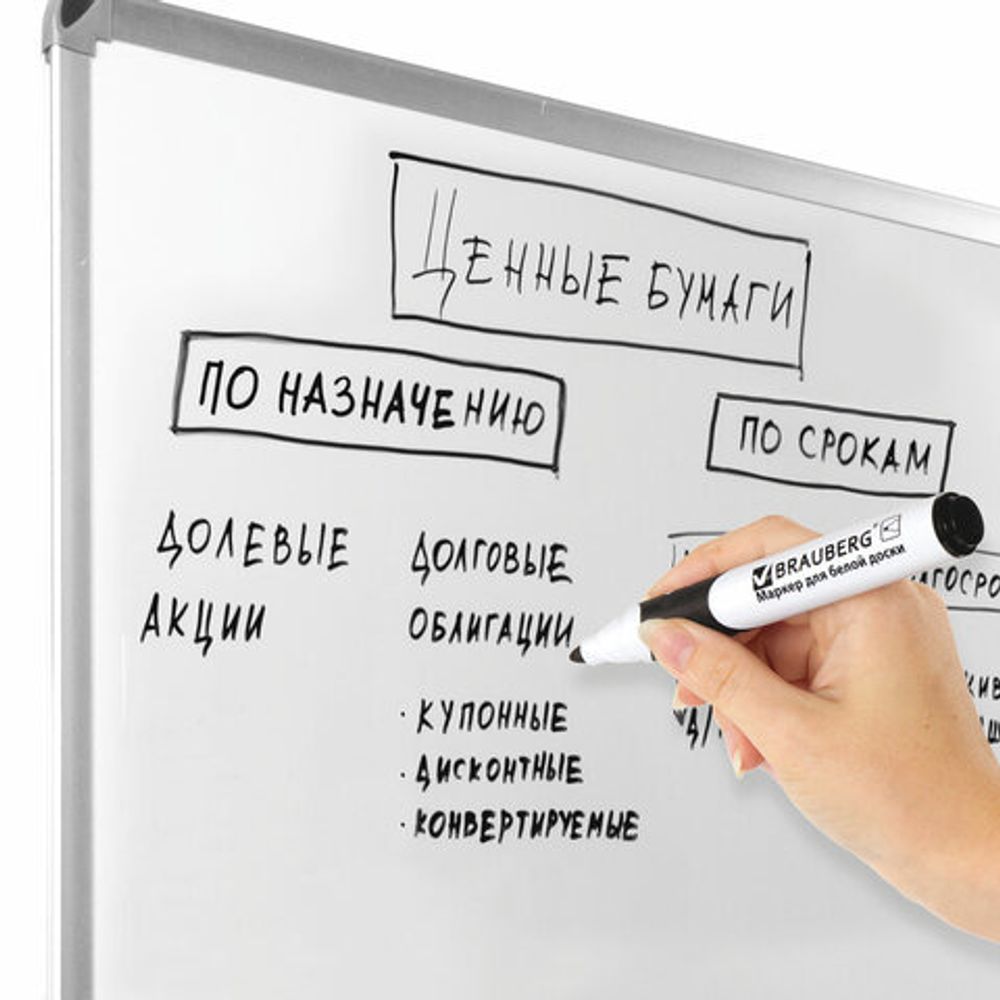 ЦЕННЫЕ БУМАГИ
ПО НАЗНАЧЕНИЮ
ПО СРОКАМ
ДОЛЕВЫЕ
АКЦИИ
ДОЛГОВЫЕ
ОБЛИГАЦИИ
· КУПОННЫЕ
· ДИСКОНТНЫЕ
· КОНВЕРТИРУЕМЫЕ
BRAUBERG
Маркер для белой доски